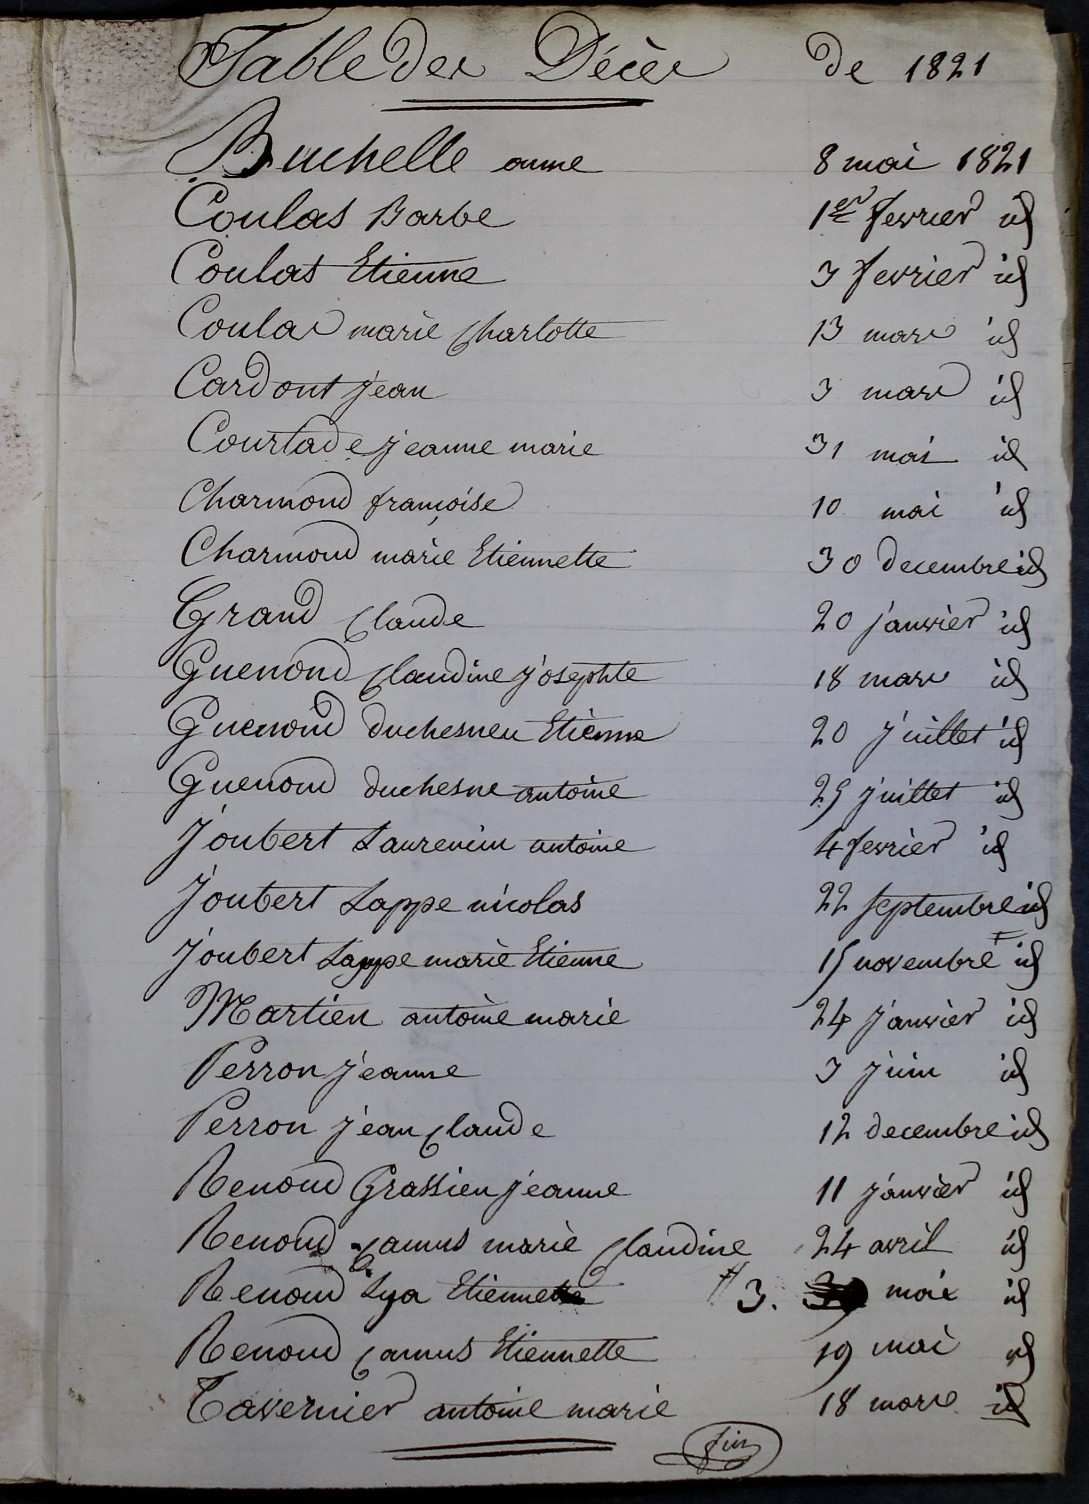 Table des Décès de 1821
Buchelle anne 8 mai 1821
Coulas Barbe 1er fevrier id
Coulas Etienne 3 fevrier id
Coulas marie Charlotte 13 mars id
Cardont jean 3 mars id
Courtade jeanne marie 31 mai id
Charmond françoise 10 mai id
Charmond marie Etiennette 30 decembre id
Grand Claude 20 janvier id
Guenond Claudine josephte 18 mars id
Guenond duchesneu Etienne 20 juillet id
Guenond duchesne antoine 25 juillet id
Joubert Laurencin antoine 4 fevrier id
Joubert Lappe nicolas 22 septembre id
Joubert Lappe marie Etienne 15 novembre id
Martien antoine marie 24 janvier id
Perron jeanne 3 juin id
Perron jean Claude 12 decembre id
Renoud Grassien jeanne 11 janvier id
Renoud Camus marie Claudine 24 avril id
Renoud Lya Etiennette 3. mai id
Renoud Camus Etiennette 19 mai id
Tavernier antoine marie 18 mars id
fin